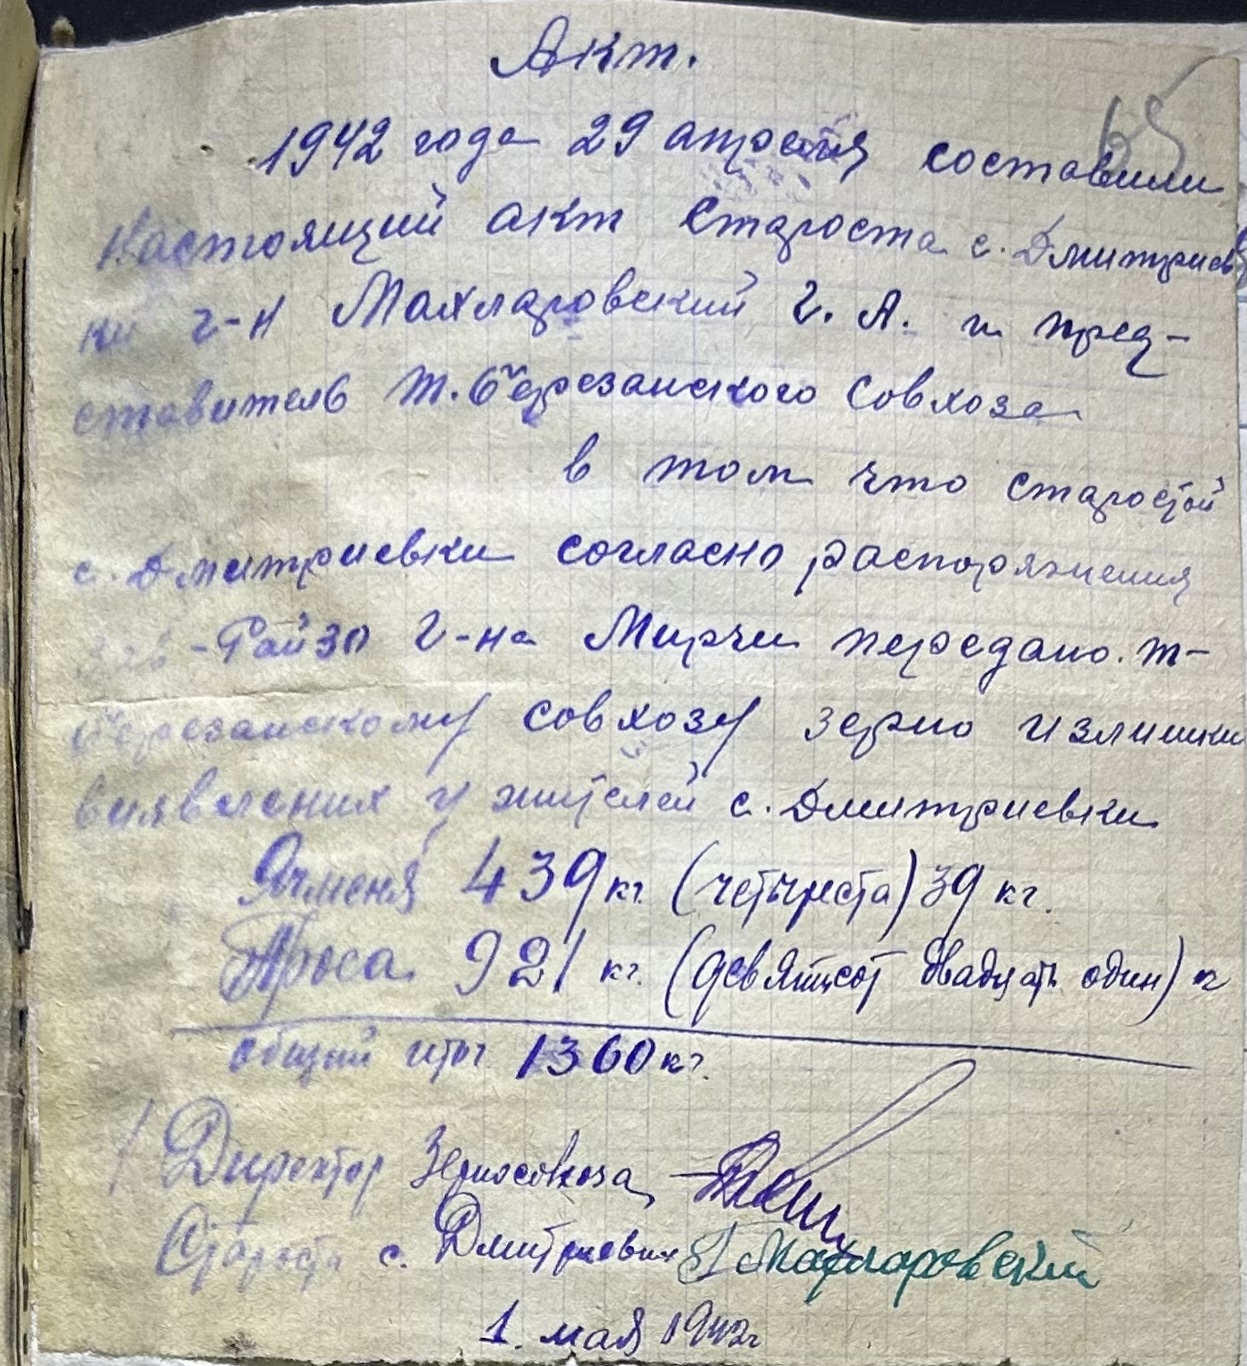 Акт.
65
1942 года 29 апреля составили
настоящий акт Староста с. Дмитриев
ки г-н Махларовский Г. А. и пред-
ставитель Т. березанского Совхоза
в том что старостой
с. Дмитриевки согласно распоряжения
Зав-Райзо г-на Мирчи передано. Т-
березанскому совхозу зерно излишки
виявлених у жителей с. Дмитриевки
Ячменя 439 кг. (четыреста) 39 кг.
Проса 921 кг. (девятсот двадцать один) к
общий итог 1360 кг.
Директор Зерносовхоза
Староста с. Дмитриевки Махларовский
1. мая 1942г